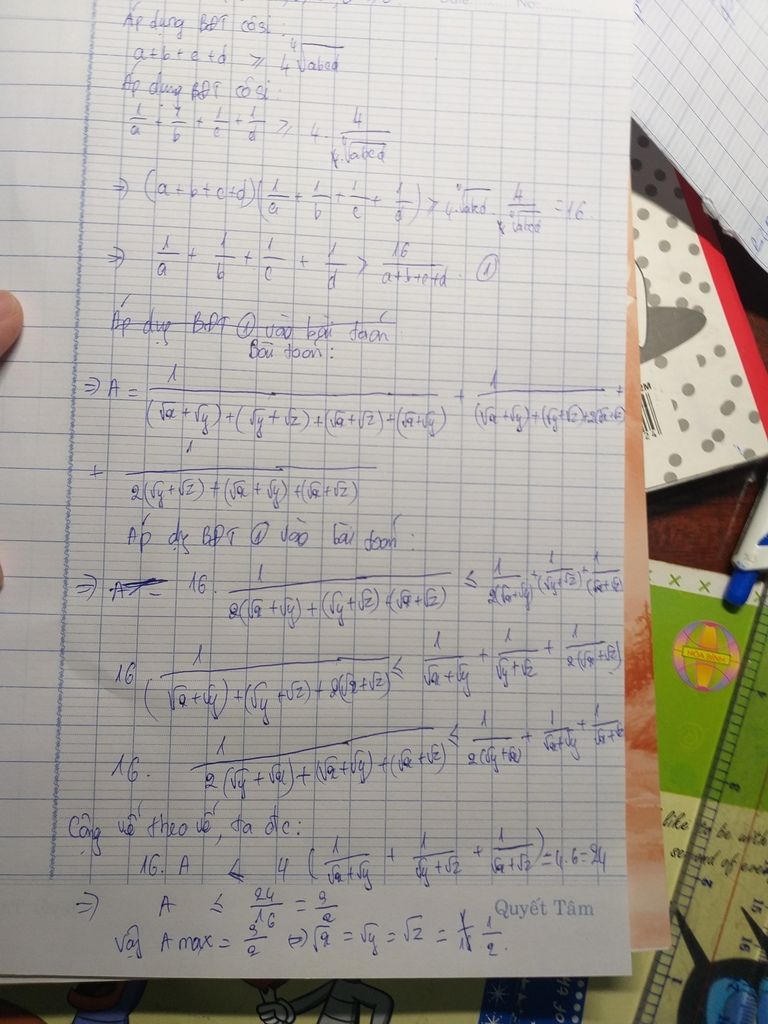 Áp dụng BĐT Côsi:
a+b+c+d ≥ 4∜abcd
Áp dụng BĐT Côsi:
1/a + 1/b + 1/c + 1/d ≥ 4 · 4/∜abcd
⇒ (a+b+c+d)(1/a + 1/b + 1/c + 1/d) ≥ 4·∜abcd · 4/∜abcd = 16.
⇒ 1/a + 1/b + 1/c + 1/d ≥ 16/(a+b+c+d) ①
Áp dụng BĐT ① vào bài toán
Bài toán:
⇒ A = 1/((√x+√y)+(√y+√z)+(√x+√z)+(√x+√y)) + 1/((√x+√y)+(√y+√z)+2(√x+√z)) +
+ 1/(2(√y+√z)+(√x+√y)+(√x+√z))
Áp dụg BĐT ① vào bài toán:
⇒ A = 16. 1/(2(√x+√y)+(√y+√z)+(√x+√z)) ≤ 1/2(√x+√y) + 1/(√y+√z) + 1/(√x+√z)
16 1/((√x+√y)+(√y+√z)+2(√x+√z)) ≤ 1/(√x+√y) + 1/(√y+√z) + 1/2(√x+√z)
16. 1/(2(√y+√z)+(√x+√y)+(√x+√z)) ≤ 1/2(√y+√z) + 1/(√x+√y) + 1/(√x+√z)
Cộng vế theo vế, ta đc:
16. A ≤ 4 (1/(√x+√y) + 1/(√y+√z) + 1/(√x+√z)) = 4.6 = 24
⇒ A ≤ 24/16 = 3/2
Quyết Tâm
Vậy A max = 3/2 ⇔ √x = √y = √z = 1/2.
HÒA BÌNH